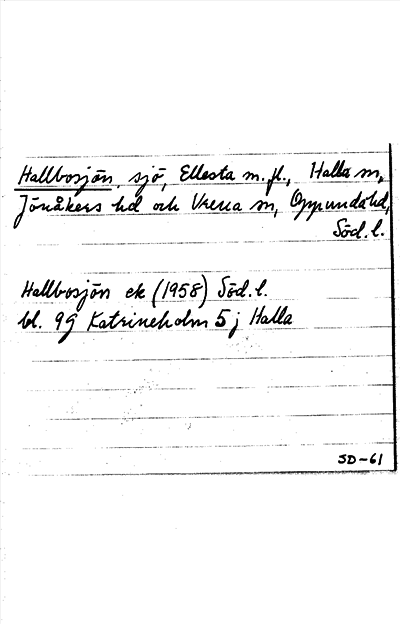 Hallbosjön, sjö, Ellesta m.fl., Halla sn,
Jönåkers hd och Vrena sn, Oppunda hd,
Söd.l.
Hallbosjön ek (1958) Söd.l.
bl. 9G Katrineholm 5j Halla
SD-61